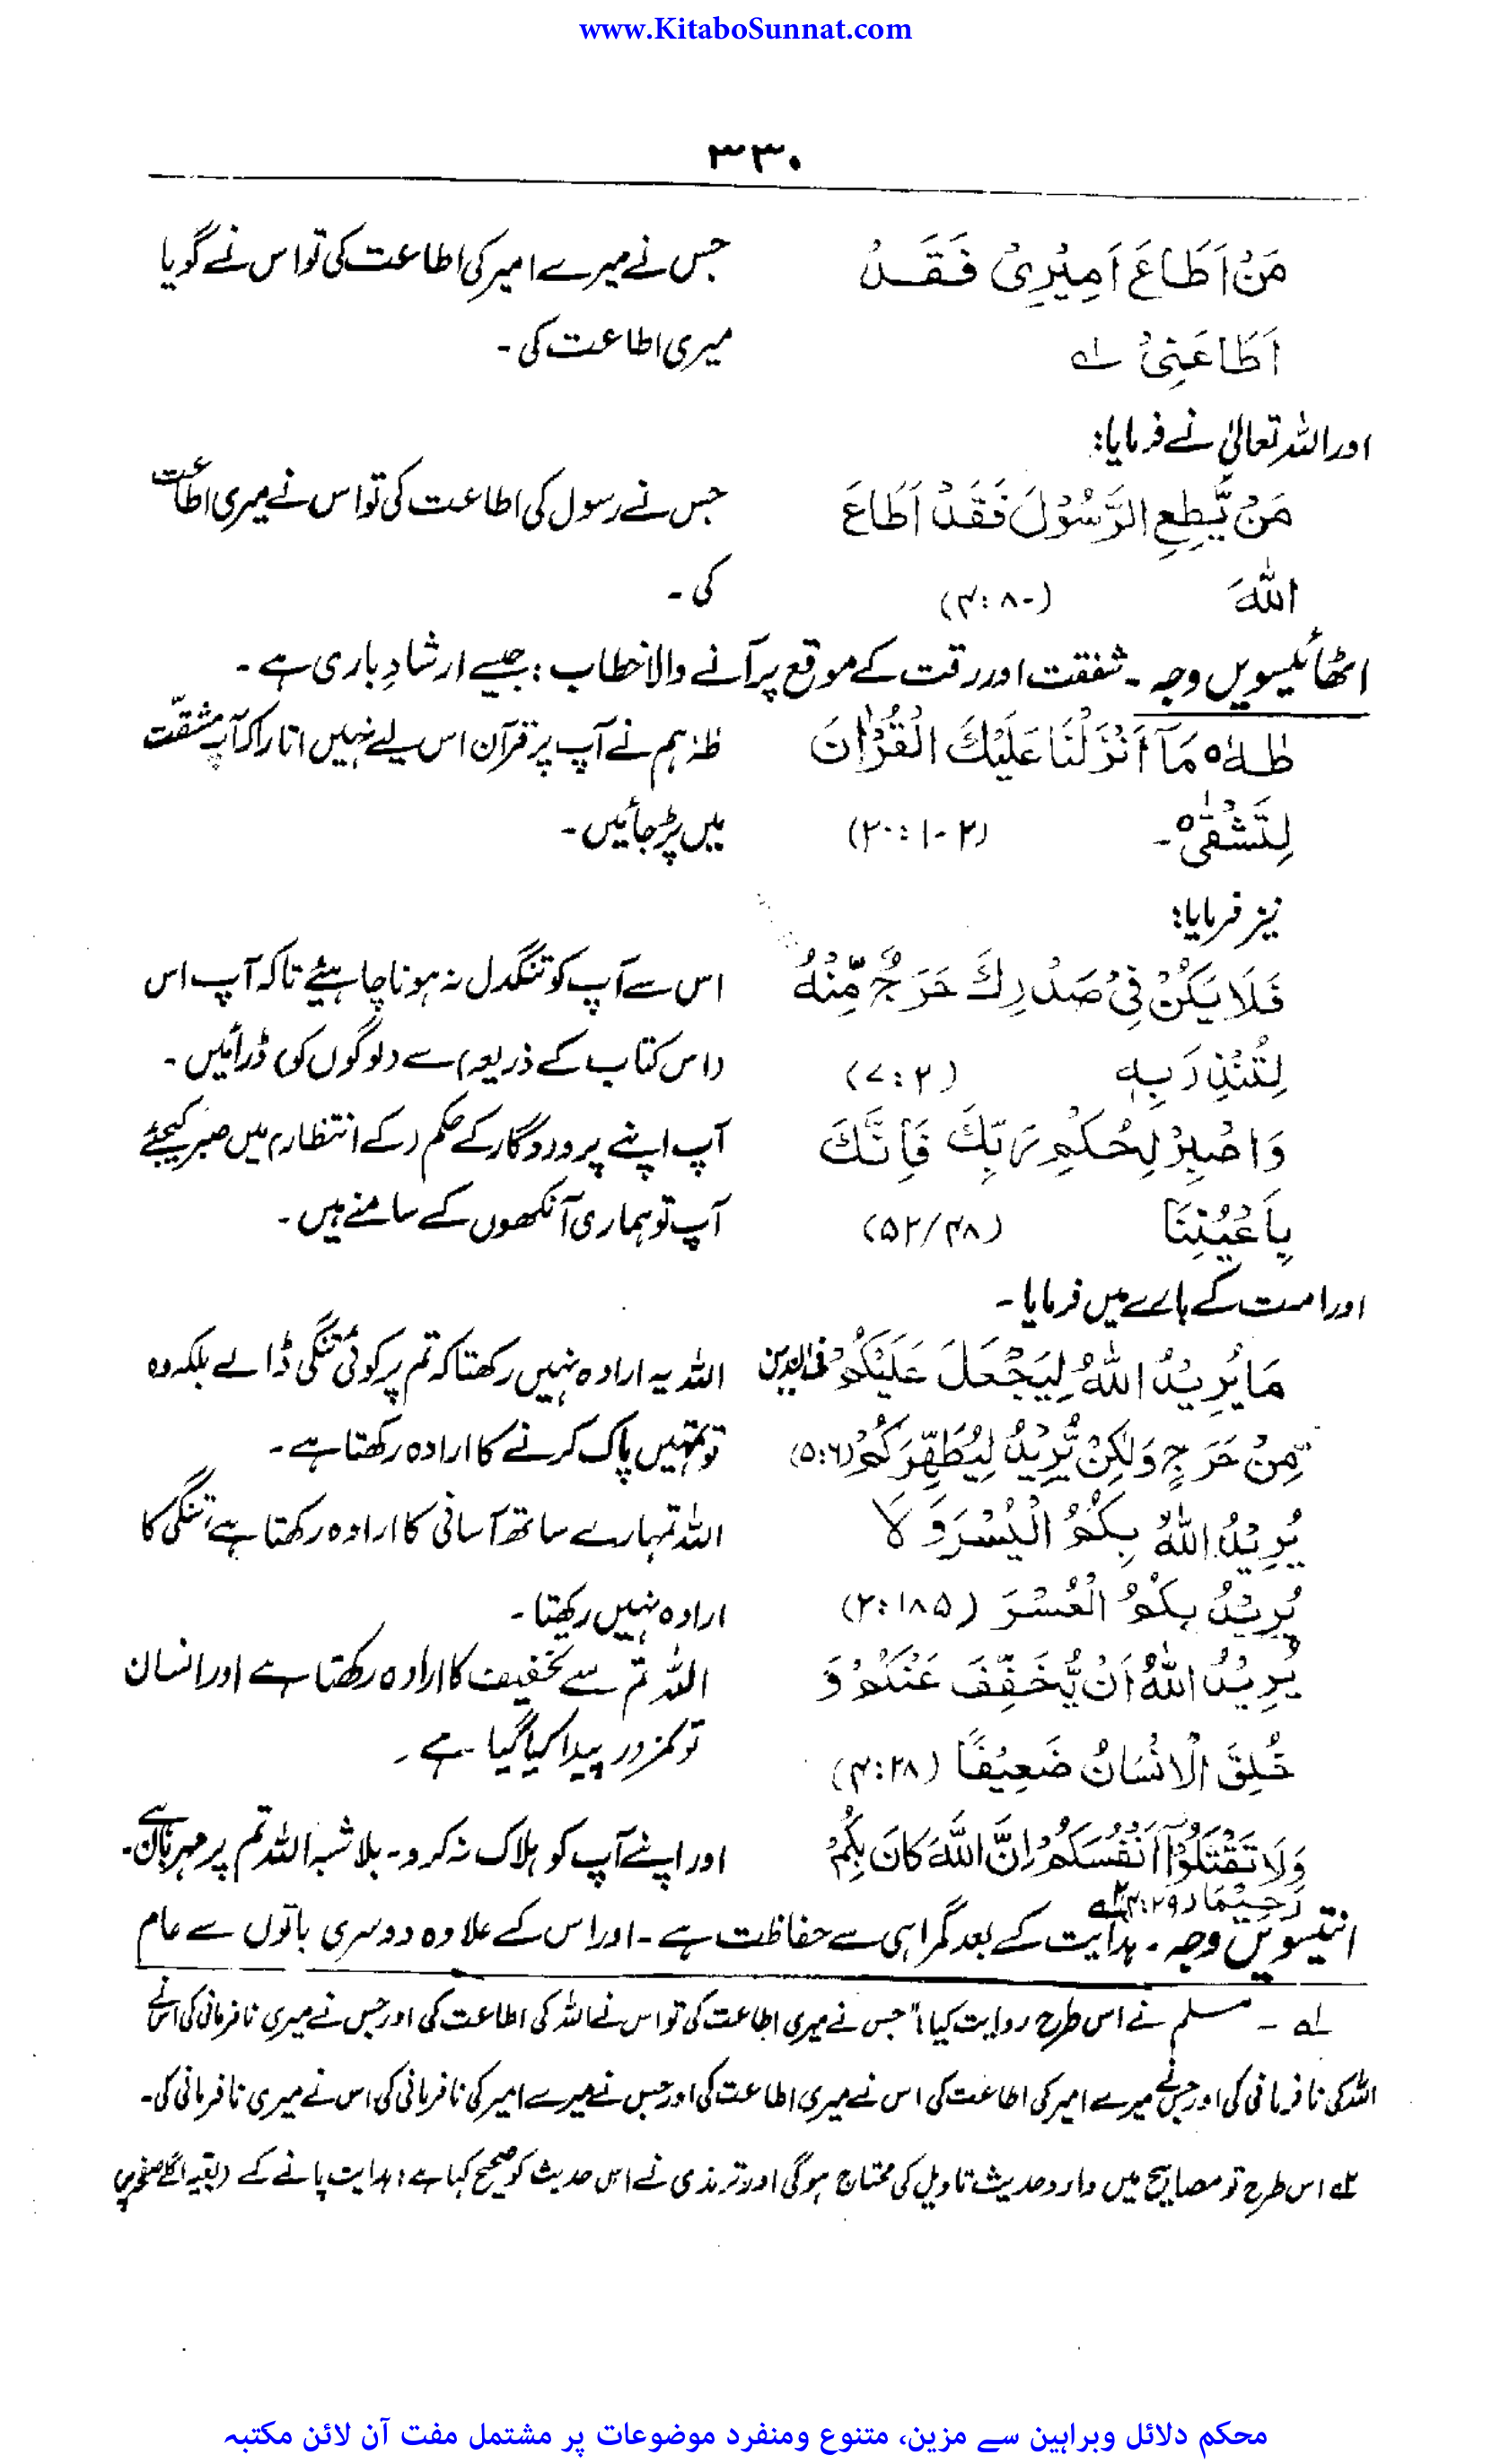 www.KitaboSunnat.com
۳۳۰
مَنْ اَطَاعَ اَمِیْرِیْ فَقَدْ جس نے میرے امیر کی اطاعت کی تو اس نے گویا
اَطَاعَنِیْ ؎۱ میری اطاعت کی ۔
اور اللہ تعالیٰ نے فرمایا:
مَنْ یُّطِعِ الرَّسُوْلَ فَقَدْ اَطَاعَ جس نے رسول کی اطاعت کی تو اس نے میری اطاعت
اللّٰهَ (۴:۸۰) کی ۔
اٹھائیسویں وجہ ۔ شفقت اور رقت کے موقع پر آنے والا خطاب : جیسے ارشادِ باری ہے ۔
طٰهٰ ه مَآ اَنْزَلْنَا عَلَیْكَ الْقُرْاٰنَ طٰہٰ ہم نے آپ پر قرآن اس لیے نہیں اتارا کہ آپ مشقّت
لِتَشْقٰیٓ ه ۔ (۲۰: ۱-۲) میں پڑ جائیں ۔
نیز فرمایا:
فَلَا یَكُنْ فِیْ صَدْرِكَ حَرَجٌ مِّنْهُ اس سے آپ کو تنگدل نہ ہونا چاہیئے تاکہ آپ اس
لِتُنْذِرَ بِهٖ (۷:۲) (اس کتاب کے ذریعہ) سے (لوگوں کو) ڈرائیں ۔
وَاصْبِرْ لِحُكْمِ رَبِّكَ فَاِنَّكَ آپ اپنے پروردگار کے حکم (کے انتظار) میں صبر کیجئے
بِاَعْیُنِنَا (۵۲/۴۸) آپ تو ہماری آنکھوں کے سامنے ہیں ۔
اور امت کے بارے میں فرمایا ۔
مَا یُرِیْدُ اللّٰهُ لِیَجْعَلَ عَلَیْكُمْ فی الدین اللہ یہ ارادہ نہیں رکھتا کہ تم پر کوئی تنگی ڈالے بلکہ وہ
مِنْ حَرَجٍ وَلٰكِنْ یُّرِیْدُ لِیُطَهِّرَكُمْ (۵:۶) تو تمہیں پاک کرنے کا ارادہ رکھتا ہے ۔
یُرِیْدُ اللّٰهُ بِكُمُ الْیُسْرَ وَ لَا اللہ تمہارے ساتھ آسانی کا ارادہ رکھتا ہے تنگی کا
یُرِیْدُ بِكُمُ الْعُسْرَ (۲:۱۸۵) ارادہ نہیں رکھتا ۔
یُرِیْدُ اللّٰهُ اَنْ یُّخَفِّفَ عَنْكُمْ وَ اللہ تم سے تخفیف کا ارادہ رکھتا ہے اور انسان
خُلِقَ الْاِنْسَانُ ضَعِیْفًا (۴:۲۸) تو کمزور پیدا کیا گیا ہے ۔
وَلَا تَقْتُلُوْٓا اَنْفُسَكُمْ اِنَّ اللّٰهَ كَانَ بِكُمْ اور اپنے آپ کو ہلاک نہ کرو ۔ بلا شبہ اللہ تم پر مہربان ہے ۔
رَحِیْمًا (۴:۲۹) ؎۲
انتیسویں وجہ ۔ ہدایت کے بعد گمراہی سے حفاظت ہے ۔ اور اس کے علاوہ دوسری باتوں سے عام
؎۱ ۔ مسلم نے اس طرح روایت کیا : " جس نے میری اطاعت کی تو اس نے اللہ کی اطاعت کی اور جس نے میری نافرمانی کی اس نے
اللہ کی نافرمانی کی اور جس نے میرے امیر کی اطاعت کی اس نے میری اطاعت کی اور جس نے میرے امیر کی نافرمانی کی اس نے میری نافرمانی کی ۔
؎۲ اس طرح تو مصابیح میں وارد حدیث تاویل کی محتاج ہو گی اور ترمذی نے اس حدیث کو صحیح کہا ہے : ہدایت پانے کے (بقیہ اگلے صفحہ پر)
محکم دلائل وبراہین سے مزین، متنوع ومنفرد موضوعات پر مشتمل مفت آن لائن مکتبہ